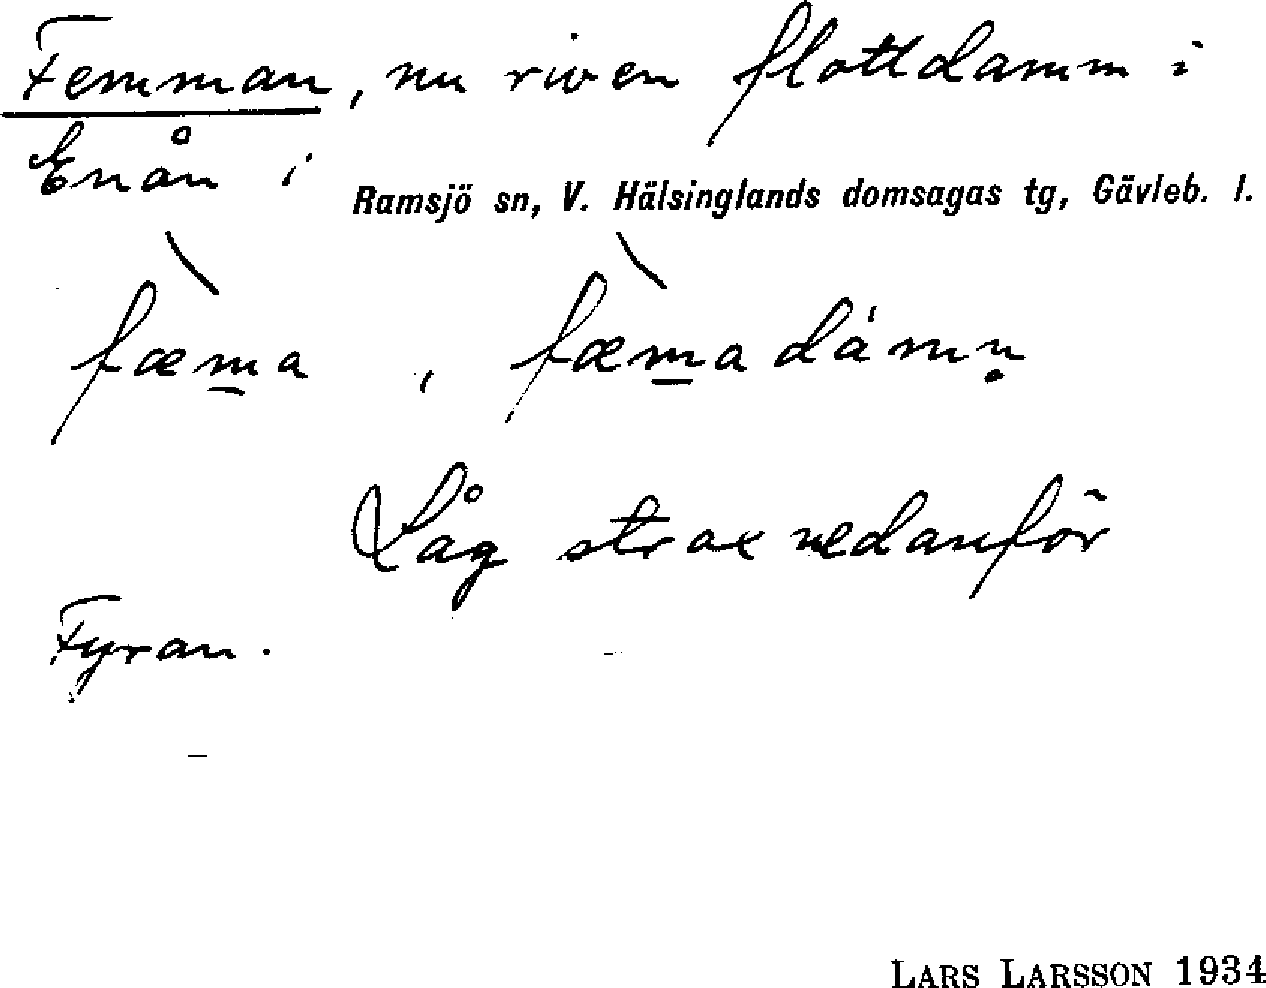 Femman, nu riven flottdamm i
Enån i Ramsjö sn, V. Hälsinglands domsagas tg, Gävleb. l.
fæ̀m̲a, fæ̀m̲adámṇ
Låg strax nedanför
Fyran.
LARS LARSSON 1934